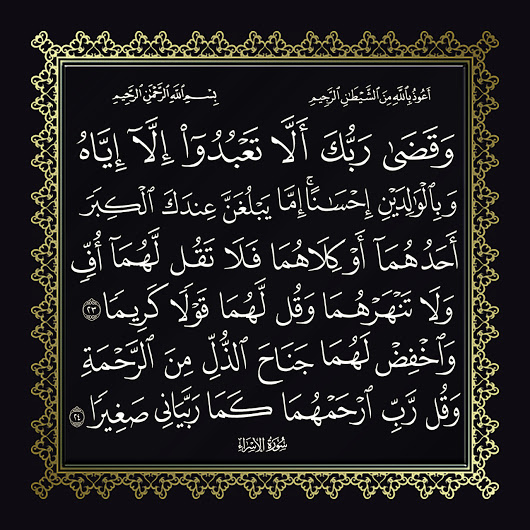 أَعُوذُ بِاللَّهِ مِنَ الشَّيْطَانِ الرَّجِيمِ بِسْمِ اللَّهِ الرَّحْمَٰنِ الرَّحِيمِ
وَقَضَىٰ رَبُّكَ أَلَّا تَعْبُدُوٓا۟ إِلَّآ إِيَّاهُ
وَبِٱلْوَٰلِدَيْنِ إِحْسَٰنًا ۚ إِمَّا يَبْلُغَنَّ عِندَكَ ٱلْكِبَرَ
أَحَدُهُمَآ أَوْ كِلَاهُمَا فَلَا تَقُل لَّهُمَآ أُفٍّ
وَلَا تَنْهَرْهُمَا وَقُل لَّهُمَا قَوْلًا كَرِيمًا ٢٣
وَٱخْفِضْ لَهُمَا جَنَاحَ ٱلذُّلِّ مِنَ ٱلرَّحْمَةِ
وَقُل رَّبِّ ٱرْحَمْهُمَا كَمَا رَبَّيَانِى صَغِيرًا ٢٤
سُورَةُ الإِسْرَاءِ